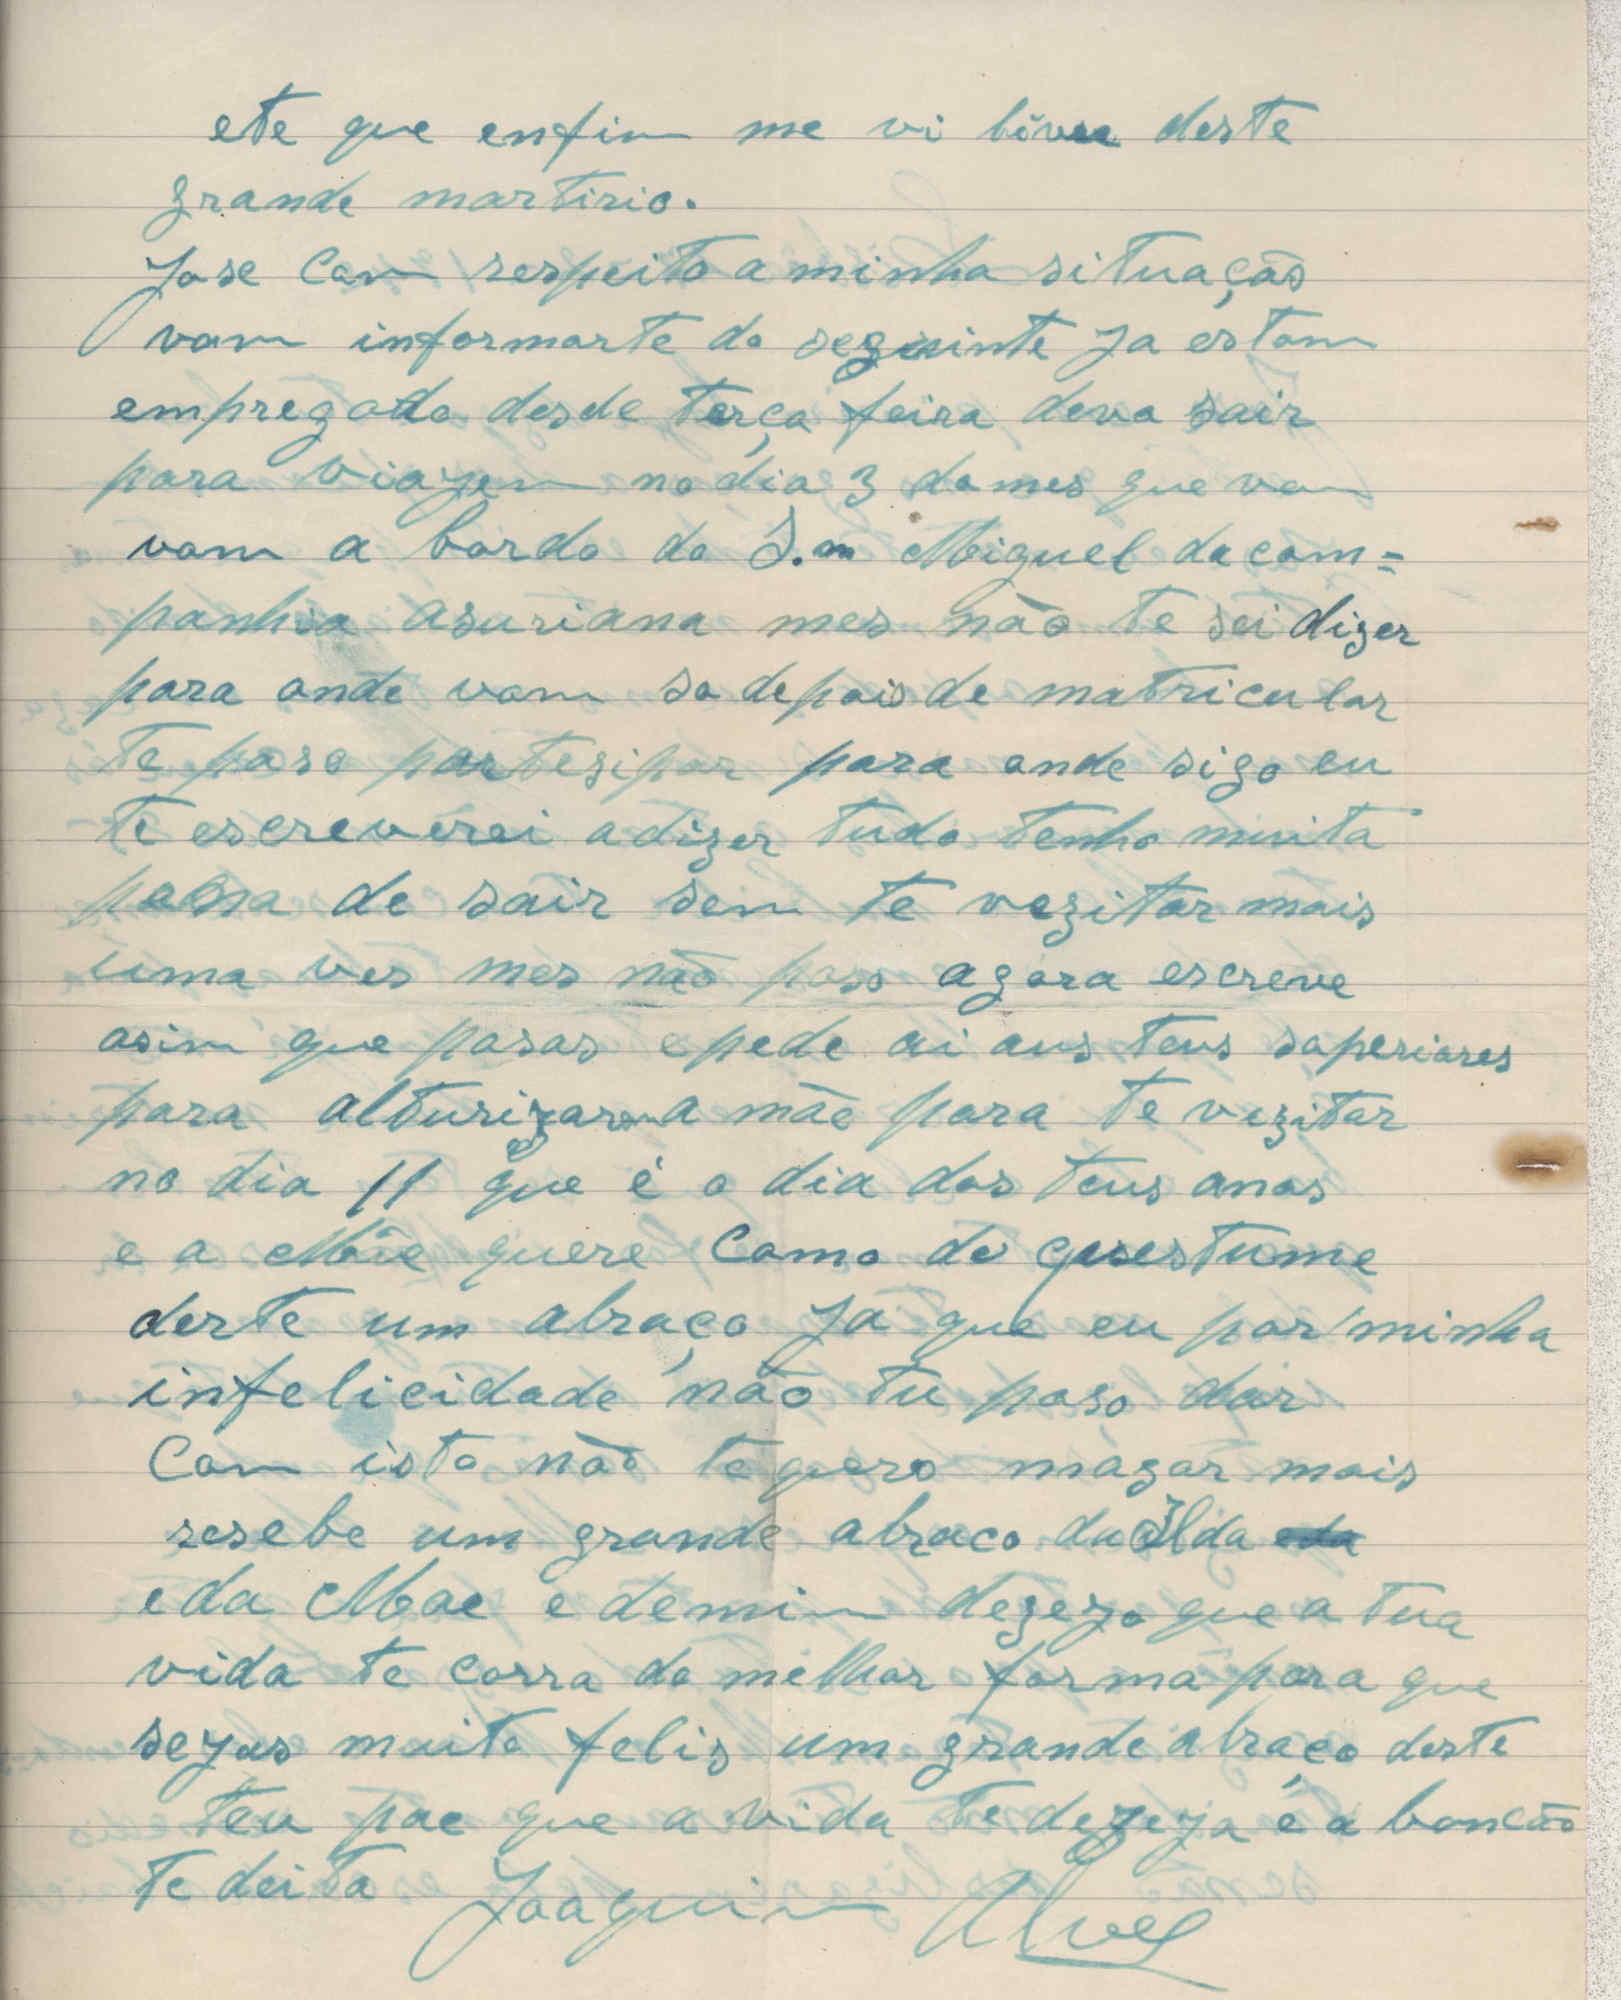 ete que enfim me vi livre deste
grande martirio.
Jose Com respeito a minha situação
vom informarte do seguinte ja estom
empregado desde terça feira devo sair
para viajem no dia 3 do mes que vem
vom a bordo do S.m Miguel da com=
panhia asuriana mes não te sei dizer
para onde vom so depois de matricular
te poso partesipar para onde sigo eu
te escreverei a dizer tudo tenho muita
pena de sair sem te vezitar mais
uma ves mes não poso agora escreve
asim que posas e pede ai aus teus saperiores
para alturizarem a mãe para te vezitar
no dia 11 que é o dia dos teus anos
e a Mãe quere Como de questume
derte um abraço ja que eu por minha
infelicidade não tu poso dar
Com isto não te quero maçar mais
resebe um grande abraco da Ilda
e da Mae e de mim dezejo que a tua
vida te corra da melhor forma para que
sejas muito feliz um grande abraço deste
teu pae que a vida te dezeja e a boncão
te deita Joaquim Alves